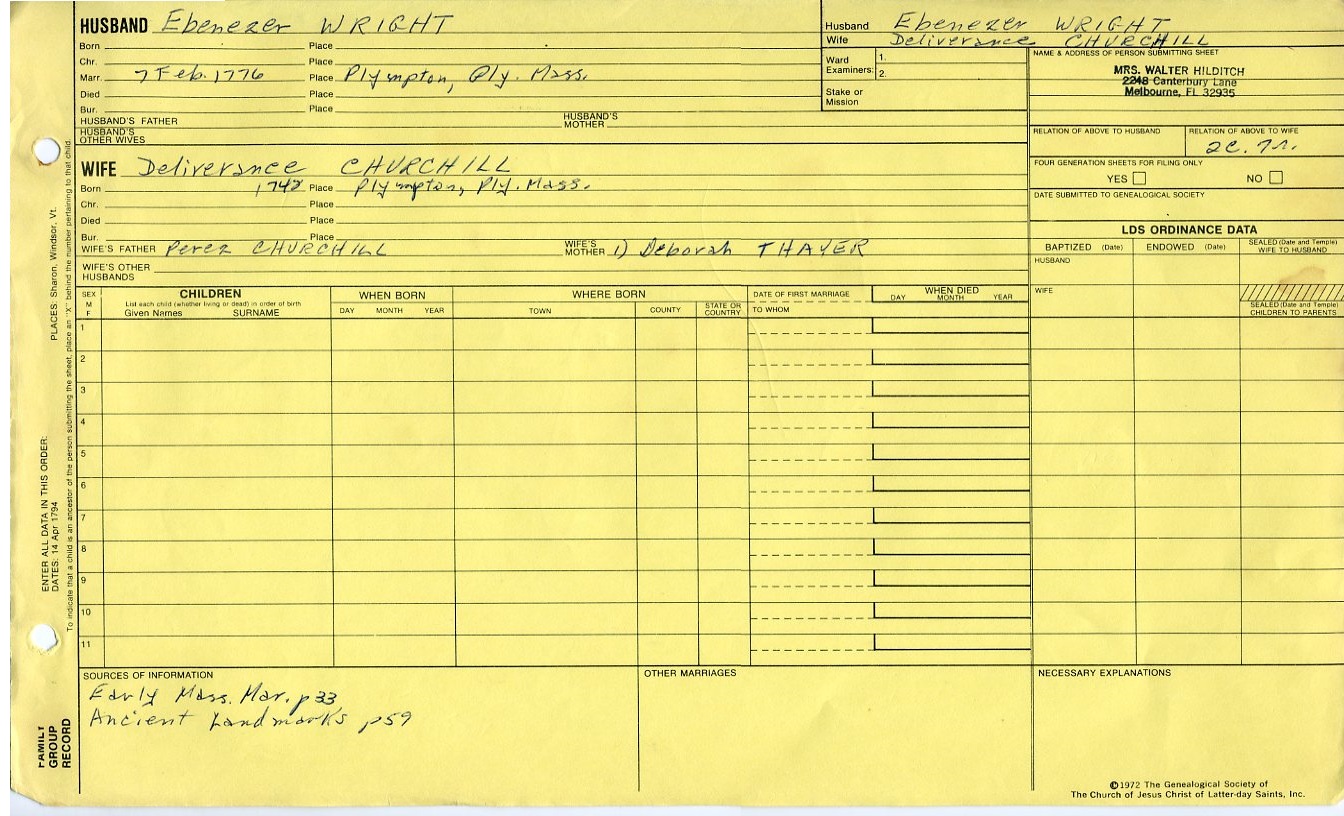 HUSBAND Ebenezer WRIGHT
Born Place
Chr. Place
Marr. 7 Feb. 1776 Place Plympton, Ply. Mass.
Died Place
Bur. Place
HUSBAND'S FATHER HUSBAND'S MOTHER
HUSBAND'S OTHER WIVES
Husband Ebenezer WRIGHT
Wife Deliverance CHURCHILL
Ward Examiners: 1.
2.
Stake or Mission
NAME & ADDRESS OF PERSON SUBMITTING SHEET
MRS. WALTER HILDITCH
2248 Canterbury Lane
Melbourne, FL 32935
RELATION OF ABOVE TO HUSBAND RELATION OF ABOVE TO WIFE
2C. 7r.
FOUR GENERATION SHEETS FOR FILING ONLY
YES NO
DATE SUBMITTED TO GENEALOGICAL SOCIETY
WIFE Deliverance CHURCHILL
Born 1748 Place Plympton, Ply. Mass.
Chr. Place
Died Place
Bur. Place
WIFE'S FATHER Perez CHURCHILL WIFE'S MOTHER 1) Deborah THAYER
WIFE'S OTHER HUSBANDS
LDS ORDINANCE DATA
BAPTIZED (Date) ENDOWED (Date) SEALED (Date and Temple) WIFE TO HUSBAND
HUSBAND
WIFE
SEALED (Date and Temple) CHILDREN TO PARENTS
SEX M F
CHILDREN
List each child (whether living or dead) in order of birth
Given Names SURNAME
WHEN BORN
DAY MONTH YEAR
WHERE BORN
TOWN COUNTY STATE OR COUNTRY
DATE OF FIRST MARRIAGE
TO WHOM
WHEN DIED
DAY MONTH YEAR
1
2
3
4
5
6
7
8
9
10
11
SOURCES OF INFORMATION
Early Mass. Mar. p33
Ancient Landmarks p59
OTHER MARRIAGES
NECESSARY EXPLANATIONS
©1972 The Genealogical Society of
The Church of Jesus Christ of Latter-day Saints, Inc.
FAMILY GROUP RECORD
ENTER ALL DATA IN THIS ORDER:
DATES: 14 Apr 1794 PLACES: Sharon, Windsor, Vt.
To indicate that a child is an ancestor of the person submitting the sheet, place an "X" behind the number pertaining to that child.